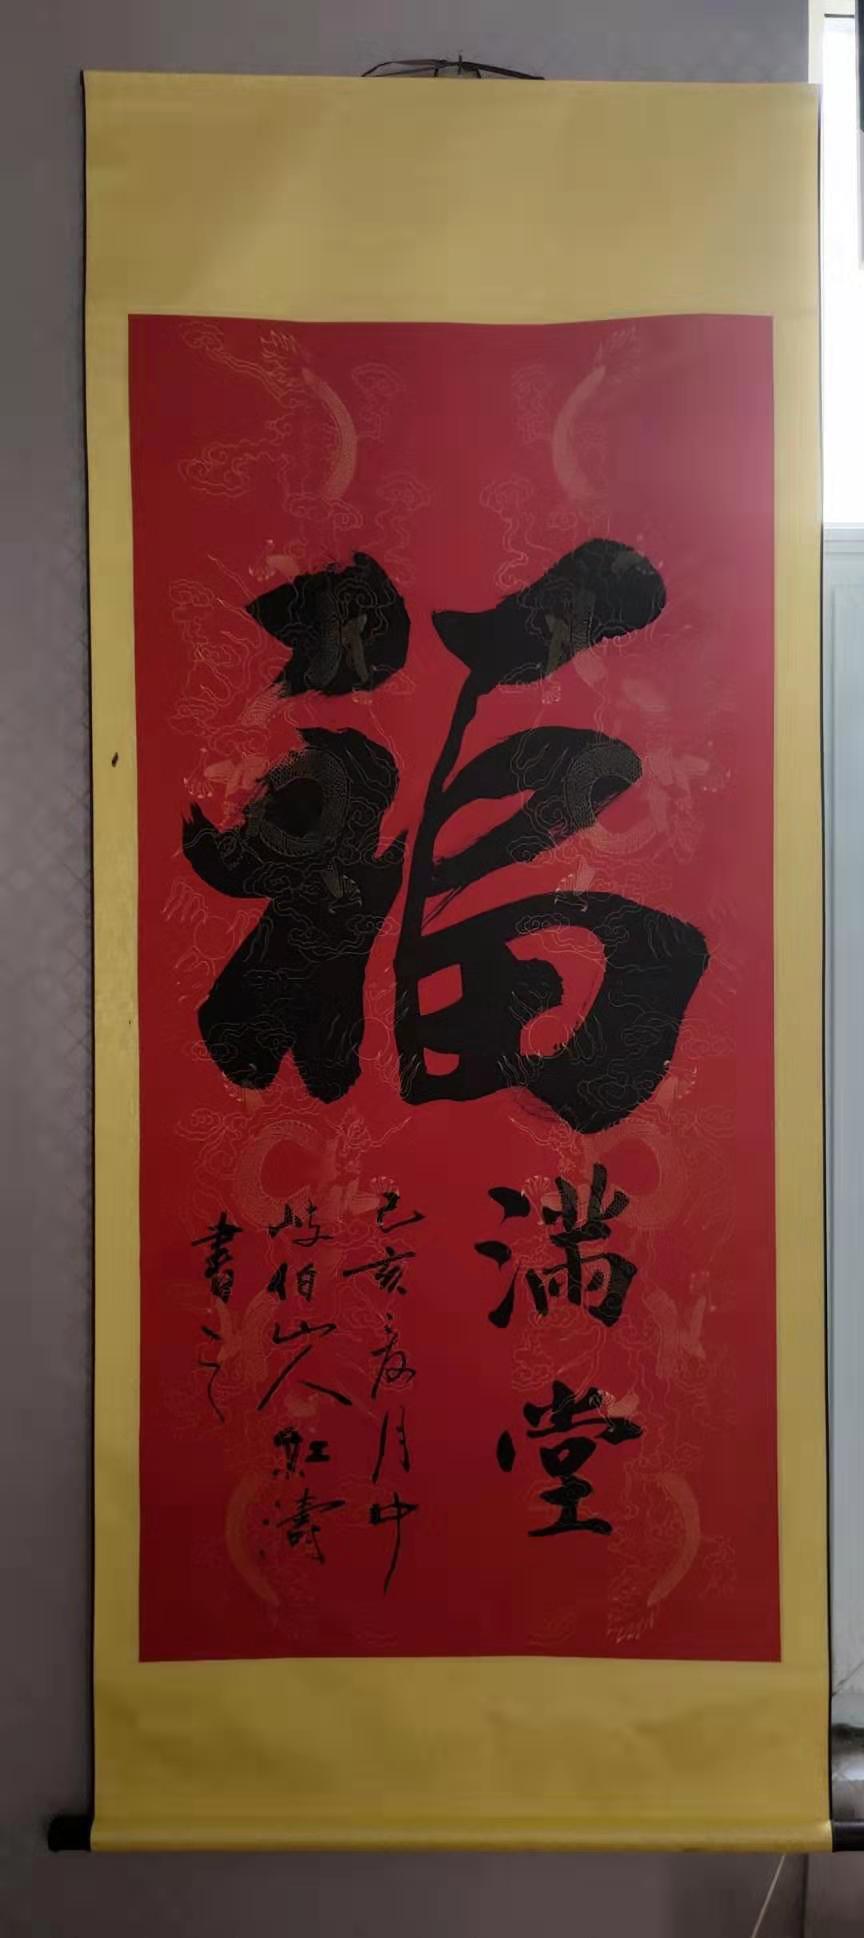 福滿堂
己亥夏月中
岐伯山人紅濤
書之